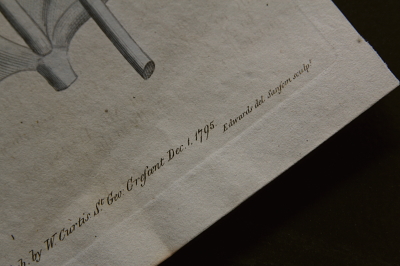 h. by W. Curtis St. Geo: Crescent Dec 1, 1795. Edwards del. Sansom sculp.t